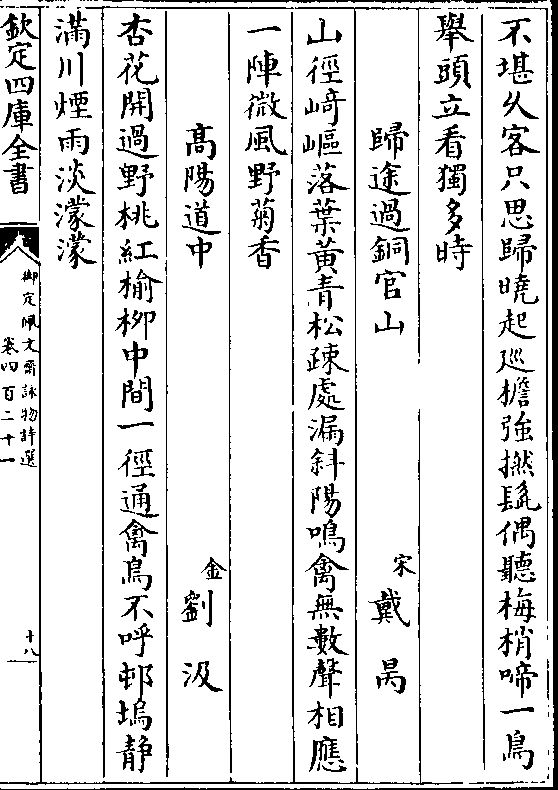 不堪久客只思歸曉起廵檐強撚髭偶聽梅梢啼一鳥
舉頭立看獨多時
歸途過銅官山
宋戴昺
山徑﨑嶇落葉黃青松疎處漏斜陽鳴禽無數聲相應
一陣微風野菊香
髙陽道中
金劉汲
杏花開過野桃紅榆栁中間一徑通禽鳥不呼邨塢静
滿川煙雨淡濛濛
欽定四庫全書
御定佩文齋詠物詩選
卷四百二十一
十八